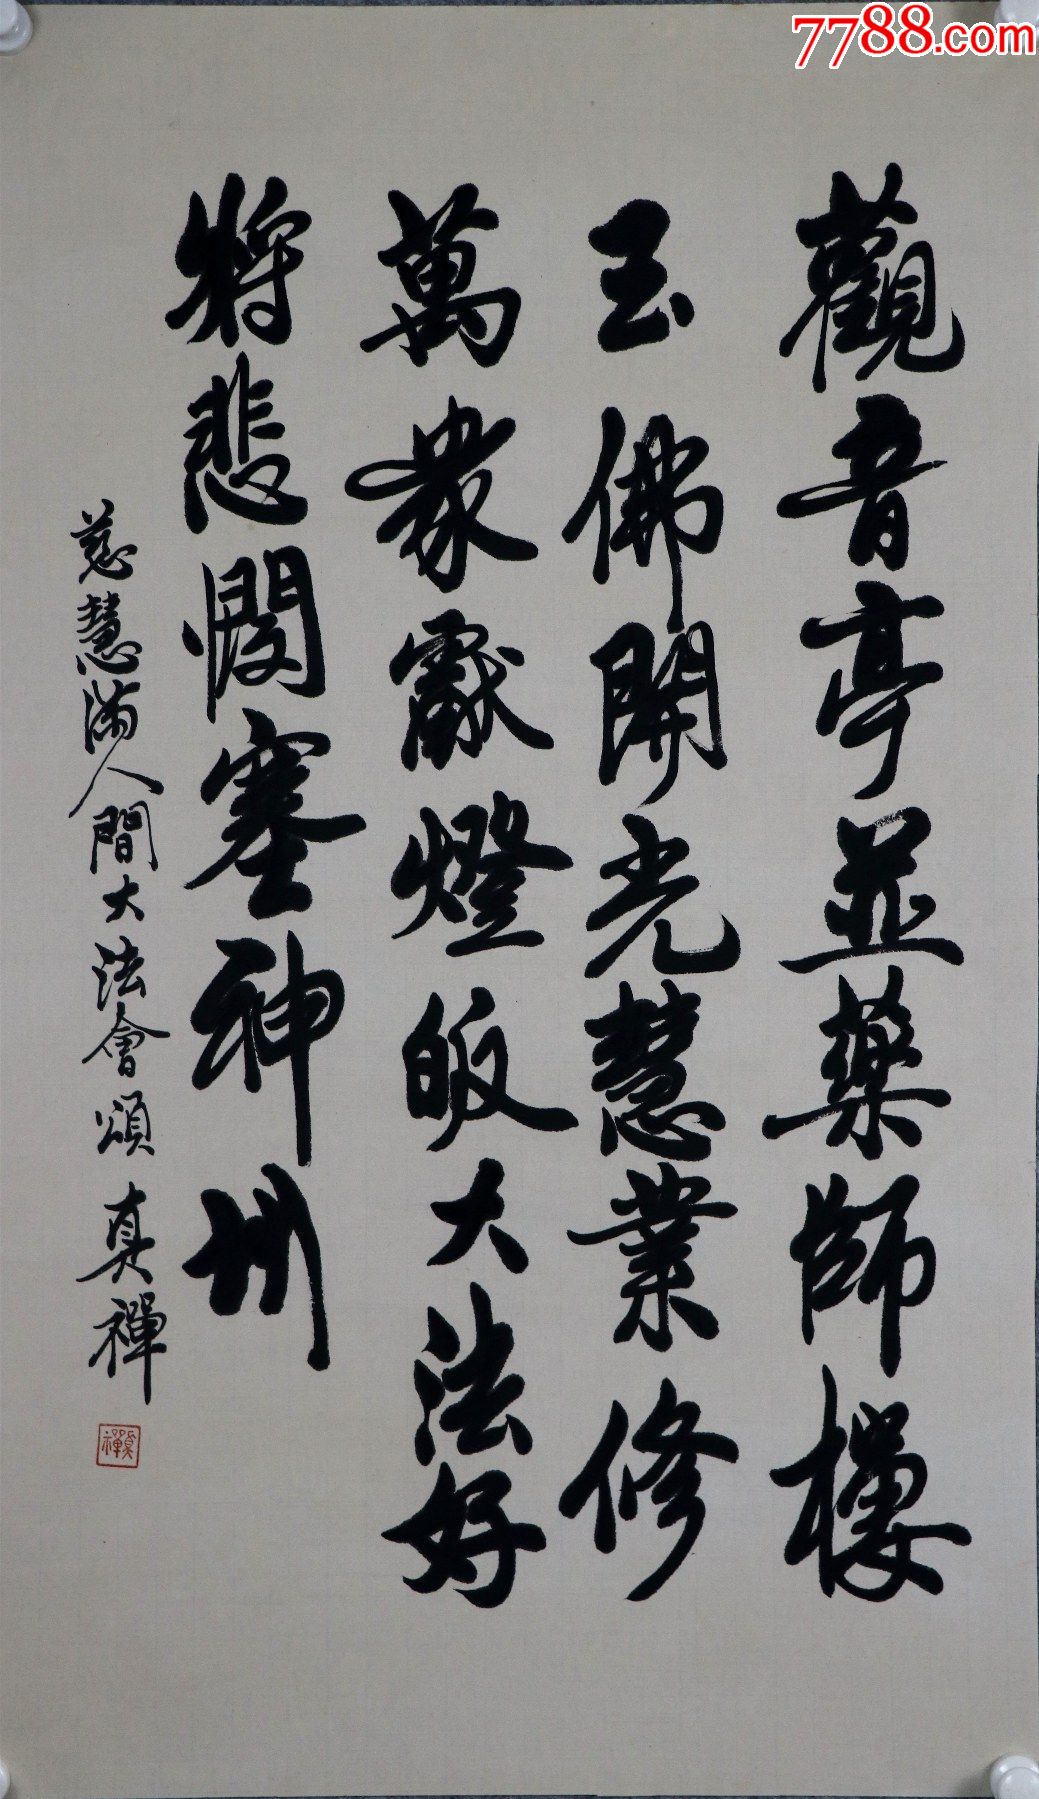 7788.com
觀音亭並藥師樓
玉佛開光慧業修
萬衆獻燈皈大法好
將悲憫塞神州
慈慧滿人間大法會頌 真禪
真禪